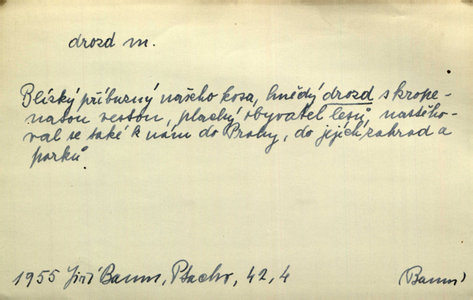 drozd m.
Blízký příbuzný našeho kosa, hnědý drozd s krope-
natou vestou, plachý obyvatel lesů, nastěho-
val se také k nám do Prahy, do jejích zahrad a
parků.
1955 Jiří Baum, Ptactvo, 42, 4
Baum